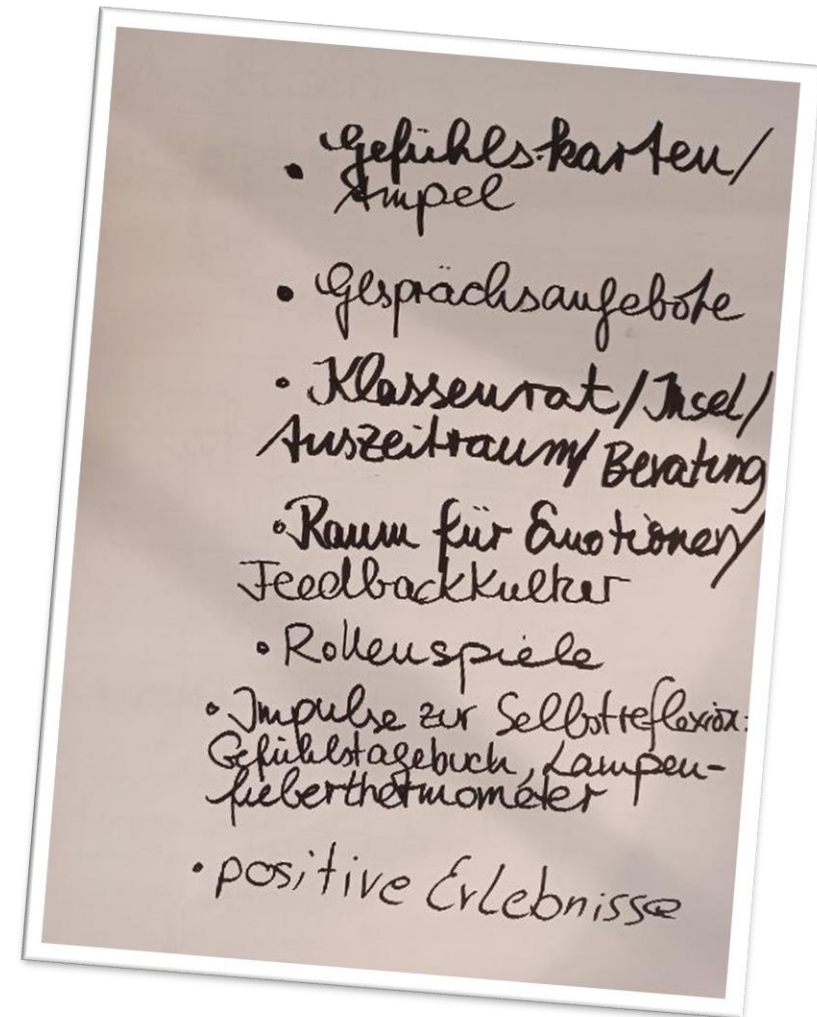 • Gefühls-karten/
Ampel
• Gesprächsangebote
• Klassenrat/Insel/
Auszeitraum/Beratung
• Raum für Emotionen/
Feedbackkultur
• Rollenspiele
• Impulse zur Selbstreflexion:
Gefühlstagebuch, Lampen-
fieberthermometer
• positive Erlebnisse